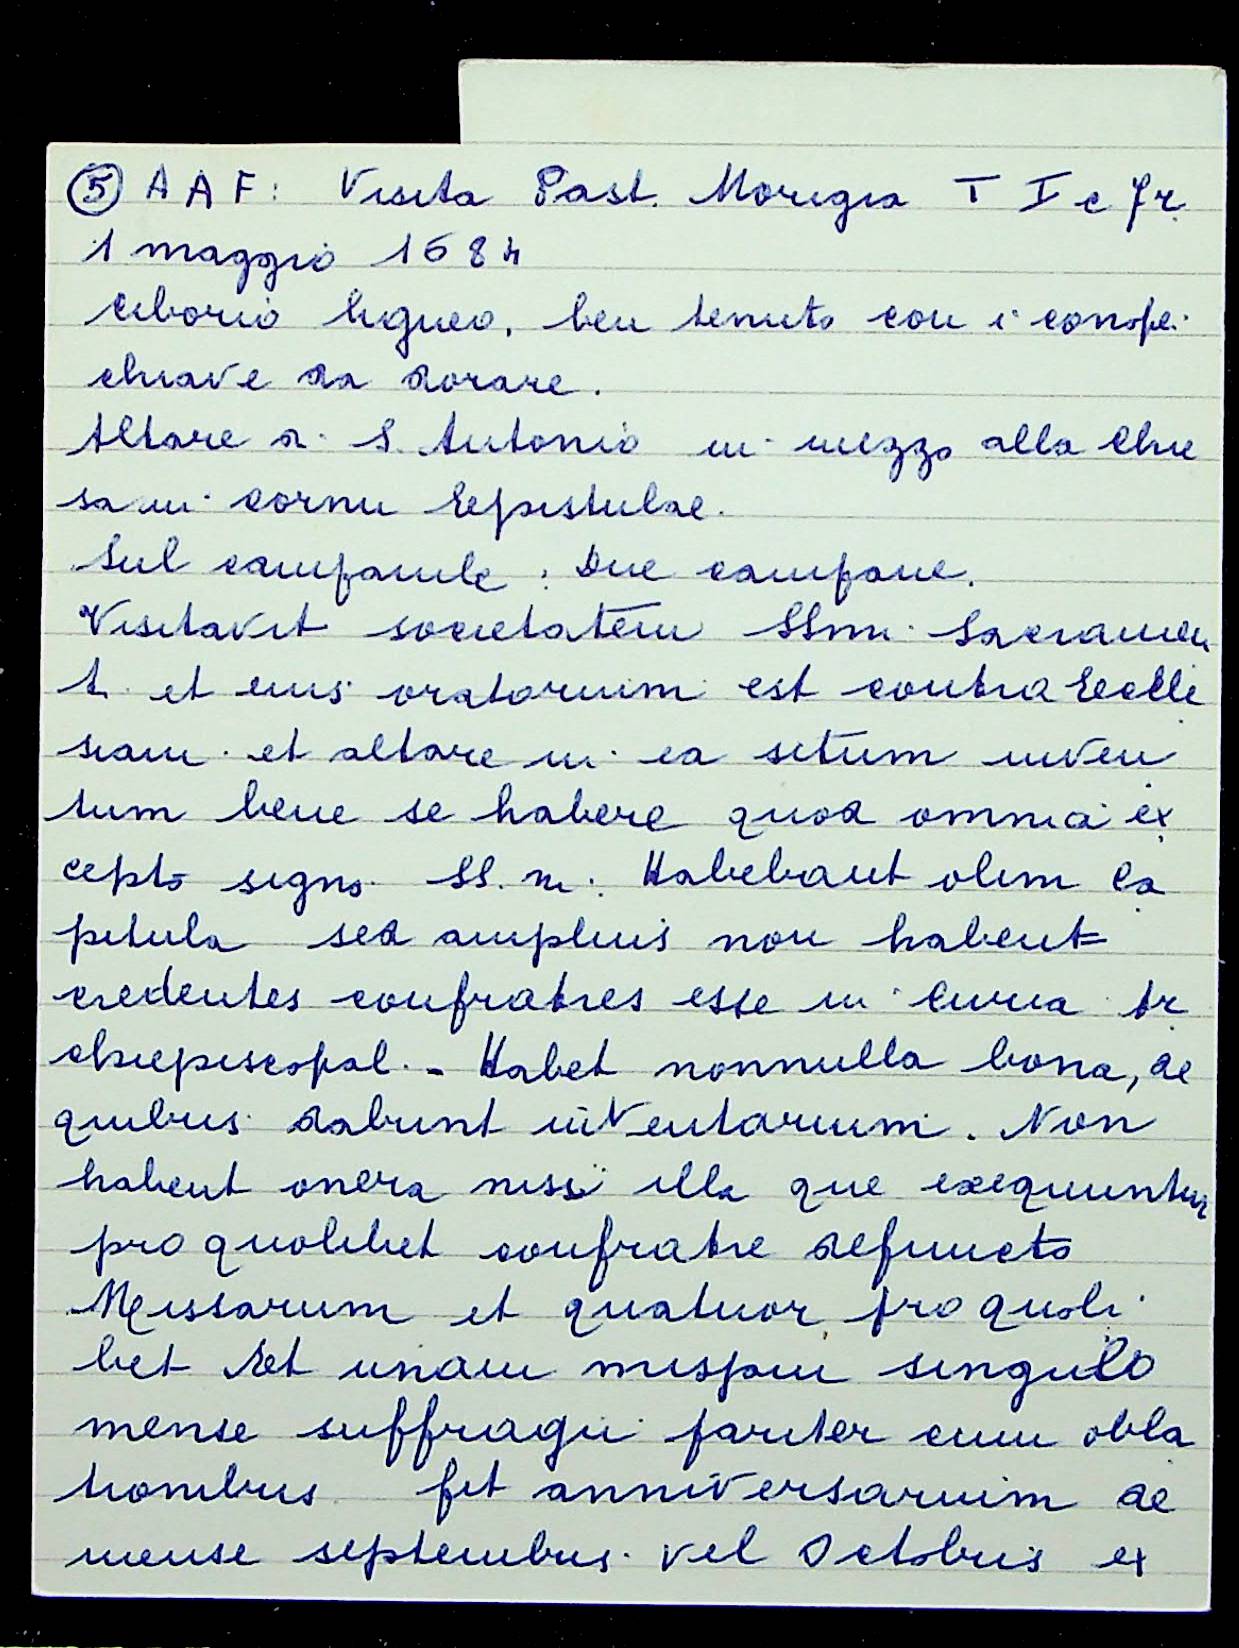 ⑤ A A F: Visita Past. Morigia T I c 72
1 maggio 1684
Ciborio ligneo, ben tenuto con i conope.
chiave da dorare.
Altare di S. Antonio in mezzo alla Chie
sa in cornu Eepistulae.
Sul campanile: due campane.
Visitavit societatem SSmi Sacramen
ti et eius oratorium est contra Eccle
siam et altare in ea situm inven
tum bene se habere quod omnia ex
cepto signo SS.mi. Habebant olim Ca
pitula sed amplius non habent
credentes confratres esse in Curia Ar
chiepiscopal. - Habet nonnulla bona, de
quibus dabunt inventarium. Non
habent onera nisi illa que exequuntur
pro quolibet confratre defuncto
Missarum et quatuor pro quoli
bet Et unam missam singulo
mense suffragii pariter cum obla
tionibus fit anniversarium de
mense septembris vel Octobris ex